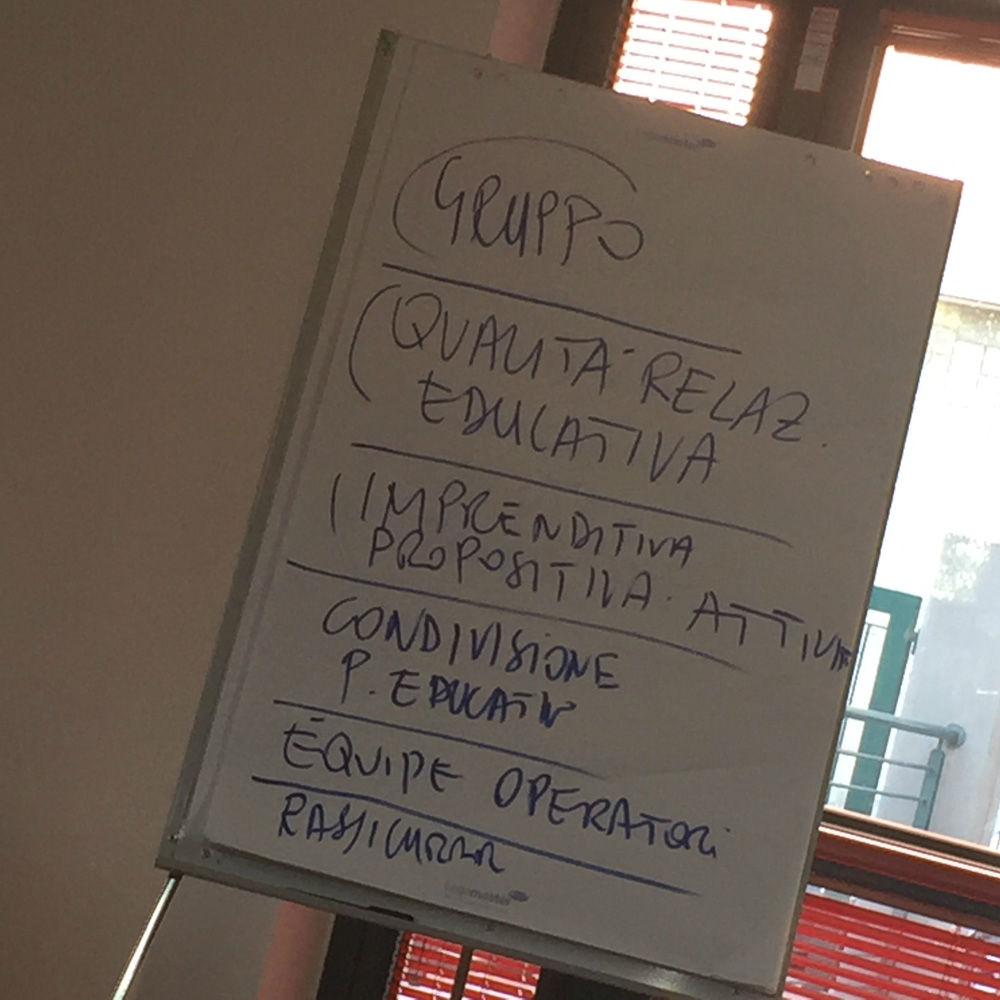 GRUPPO
QUALITÀ RELAZ.
EDUCATIVA
IMPRENDITIVA
PROPOSITIVA. ATTIVA
CONDIVISIONE
P. EDUCATIV
ÉQUIPE OPERATORI
Legamaster